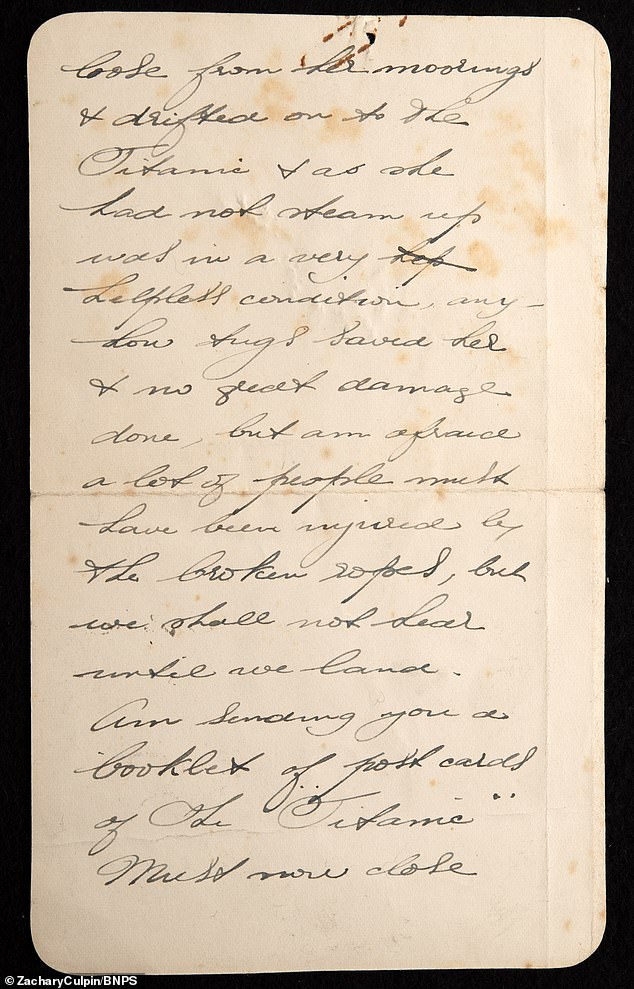 loose from her moorings
& drifted on to the
Titanic & as she
had not steam up
was in a very hep
helpless condition, any-
how tugs saved her
& no great damage
done, but am afraid
a lot of people must
have been injured by
the broken ropes, but
we shall not hear
until we land.
Am sending you a
booklet of post cards
of the "Titanic"
Must now close
© ZacharyCulpin/BNPS